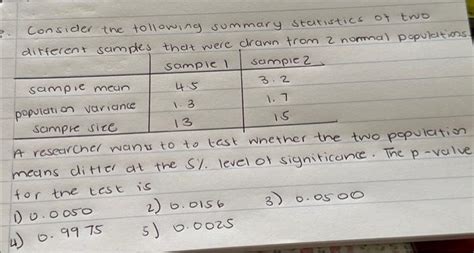 Consider the following summary statistics of two
different samples that were drawn from 2 normal populations
sample 1 sample 2
sample mean 4.5 3.2
population variance 1.3 1.7
sample size 13 15
A researcher wants to to test whether the two population
means differ at the 5% level of significance. The p-value
for the test is
1) 0.0050 2) 0.0156 3) 0.0500
4) 0.9975 5) 0.0025